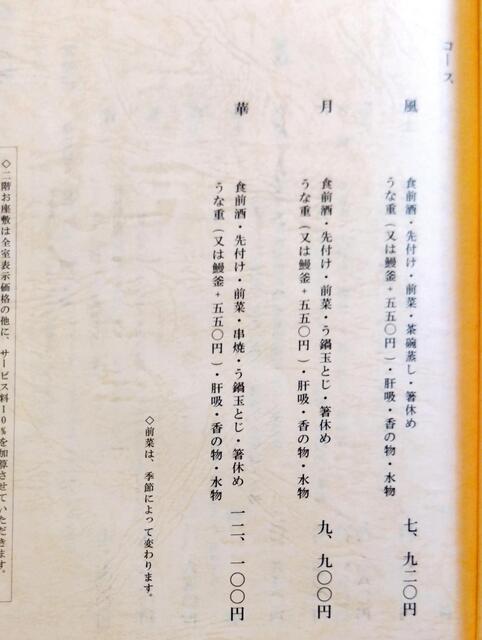 コース
風
食前酒・先付け・前菜・茶碗蒸し・箸休め
うな重（又は鰻釜＋五五〇円）・肝吸・香の物・水物
七、九二〇円
月
食前酒・先付け・前菜・う鍋玉とじ・箸休め
うな重（又は鰻釜＋五五〇円）・肝吸・香の物・水物
九、九〇〇円
華
食前酒・先付け・前菜・串焼・う鍋玉とじ・箸休め
うな重（又は鰻釜＋五五〇円）・肝吸・香の物・水物
一二、一〇〇円
◇前菜は、季節によって変わります。
◇二階お座敷は全室表示価格の他に、サービス料10％を加算させていただきます。